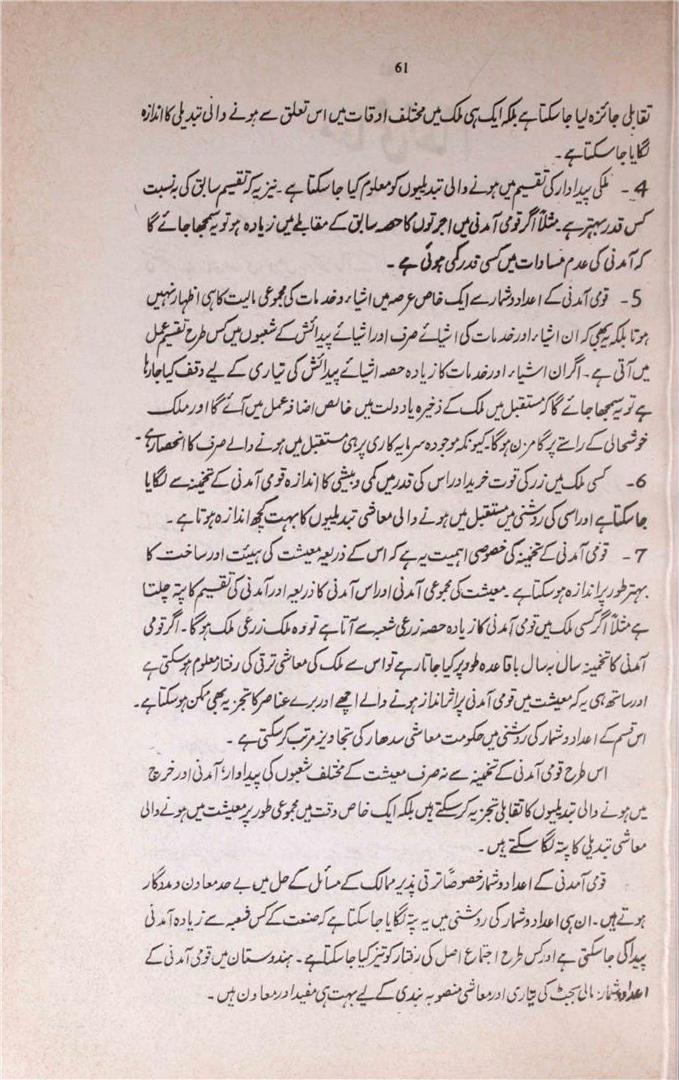 61
تقابلی جائزہ لیا جا سکتا ہے بلکہ ایک ہی ملک میں مختلف اوقات میں اس تعلق سے ہونے والی تبدیلی کا اندازہ
لگایا جا سکتا ہے۔
4۔ ملکی پیداوار کی تقسیم میں ہونے والی تبدیلیوں کو معلوم کیا جا سکتا ہے۔ نیز یہ کہ تقسیم سابق کی بہ نسبت
کس قدر بہتر ہے۔ مثلاً اگر قومی آمدنی میں اجرتوں کا حصہ سابق کے مقابلے میں زیادہ ہو تو یہ سمجھا جائے گا
کہ آمدنی کی عدم مساوات میں کسی قدر کمی ہوئی ہے۔
5۔ قومی آمدنی کے اعداد و شمار سے ایک خاص عرصہ میں اشیاء و خدمات کی مجموعی مالیت کا ہی اظہار نہیں
ہوتا بلکہ یہ بھی کہ ان اشیاء اور خدمات کی اشیائے صرف اور اشیائے پیدائش کے شعبوں میں کس طرح تقسیم عمل
میں آتی ہے۔ اگر ان اشیاء اور خدمات کا زیادہ حصہ اشیائے پیدائش کی تیاری کے لیے وقف کیا جا رہا
ہے تو یہ سمجھا جائے گا کہ مستقبل میں ملک کے ذخیرہ یا دولت میں خالص اضافہ عمل میں آئے گا اور ملک
خوشحالی کے راستے پر گامزن ہوگا۔ کیونکہ موجودہ سرمایہ کاری پر ہی مستقبل میں ہونے والے صرف کا انحصار ہے۔
6۔ کسی ملک میں زر کی قوت خرید اور اس کی قدر میں کمی و بیشی کا اندازہ قومی آمدنی کے تخمینہ سے لگایا
جا سکتا ہے اور اسی کی روشنی میں مستقبل میں ہونے والی معاشی تبدیلیوں کا بہت کچھ اندازہ ہوتا ہے۔
7۔ قومی آمدنی کے تخمینہ کی خصوصی اہمیت یہ ہے کہ اس کے ذریعہ معیشت کی ہیئت اور ساخت کا
بہتر طور پر اندازہ ہو سکتا ہے۔ معیشت کی مجموعی آمدنی اور اس آمدنی کا ذریعہ اور آمدنی کی تقسیم کا پتہ چلتا
ہے مثلاً اگر کسی ملک میں قومی آمدنی کا زیادہ حصہ زرعی شعبہ سے آتا ہے تو وہ ملک زرعی ملک ہوگا۔ اگر قومی
آمدنی کا تخمینہ سال بہ سال باقاعدہ طور پر کیا جاتا رہے تو اس سے ملک کی معاشی ترقی کی رفتار معلوم ہو سکتی ہے
اور ساتھ ہی یہ کہ معیشت میں قومی آمدنی پر اثر انداز ہونے والے اچھے اور برے عناصر کا تجزیہ بھی ممکن ہو سکتا ہے۔
اس قسم کے اعداد و شمار کی روشنی میں حکومت معاشی سدھار کی تجاویز مرتب کر سکتی ہے۔
اس طرح قومی آمدنی کے تخمینہ سے نہ صرف معیشت کے مختلف شعبوں کی پیداوار، آمدنی اور خرچ
میں ہونے والی تبدیلیوں کا تقابلی تجزیہ کر سکتے ہیں بلکہ ایک خاص وقت میں مجموعی طور پر معیشت میں ہونے والی
معاشی تبدیلی کا پتہ لگا سکتے ہیں۔
قومی آمدنی کے اعداد و شمار خصوصاً ترقی پذیر ممالک کے مسائل کے حل میں بے حد معاون و مددگار
ہوتے ہیں۔ ان ہی اعداد و شمار کی روشنی میں یہ پتہ لگایا جا سکتا ہے کہ صنعت کے کس شعبہ سے زیادہ آمدنی
پیدا کی جا سکتی ہے اور کس طرح اجتماع اصل کی رفتار کو تیز کیا جا سکتا ہے۔ ہندوستان میں قومی آمدنی کے
اعداد و شمار، مالی بجٹ کی تیاری اور معاشی منصوبہ بندی کے لیے بہت ہی مفید اور معاون ہیں۔